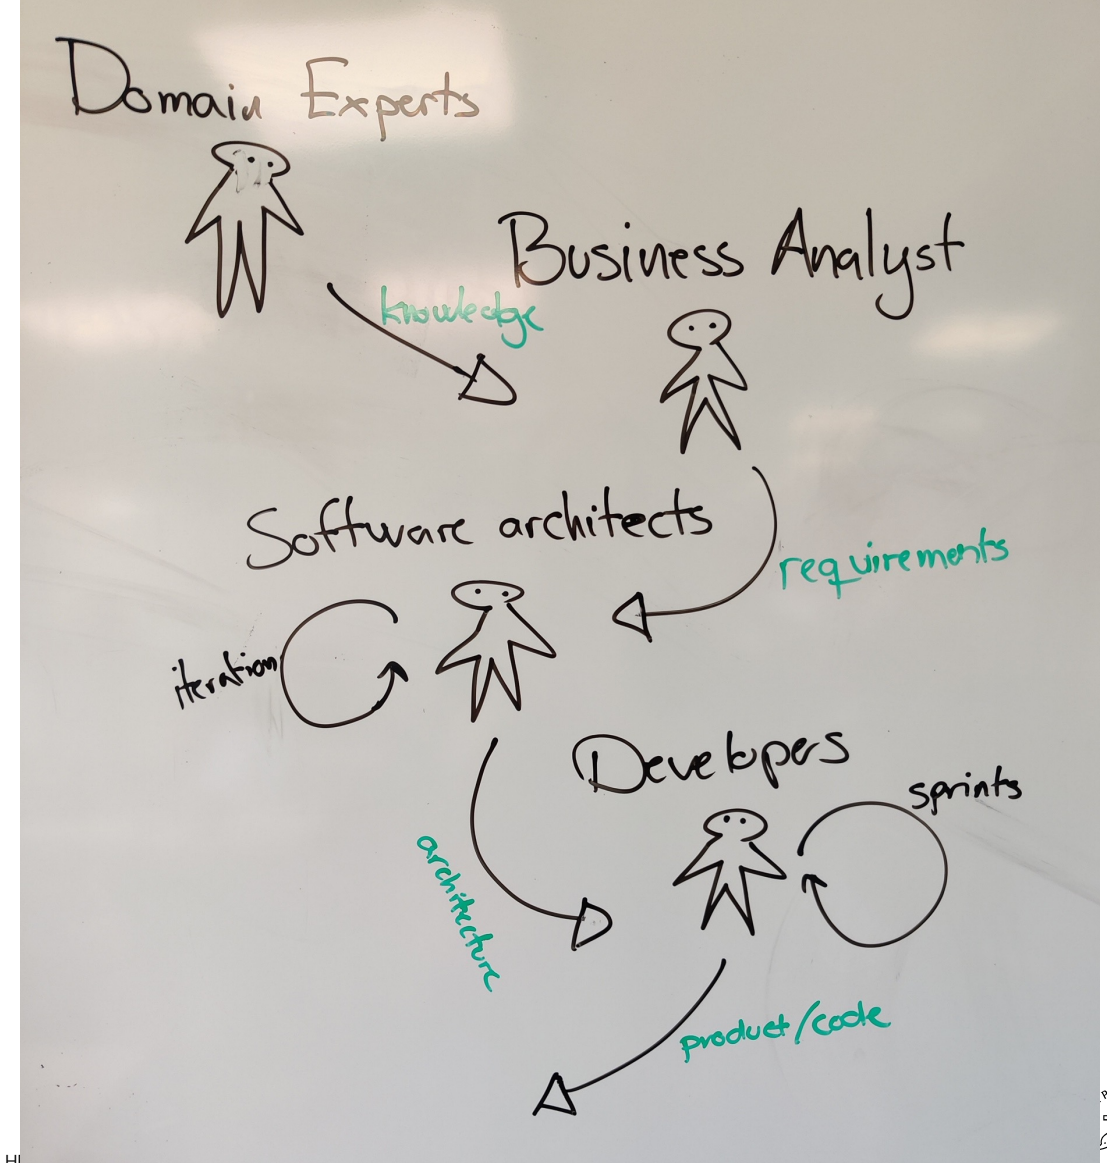 Domain Experts
Business Analyst
knowledge
Software architects
requirements
iteration
Developers
sprints
architecture
product/code